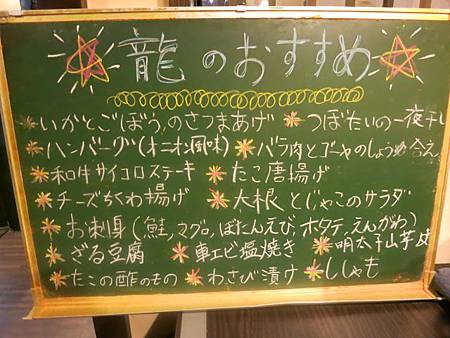 龍のおすすめ
いかとごぼうのさつまあげ つぼだいの一夜干し
ハンバーグ(オニオン風味) バラ肉とゴーヤのしょうゆ合え
和牛サイコロステーキ たこ唐揚げ
チーズちくわ揚げ 大根とじゃこのサラダ
お刺身(鮭,マグロ,ぼたんえび,ホタテ,えんがわ)
ざる豆腐 車エビ塩焼き 明太子山芋
たこの酢のもの わさび漬け ししゃも